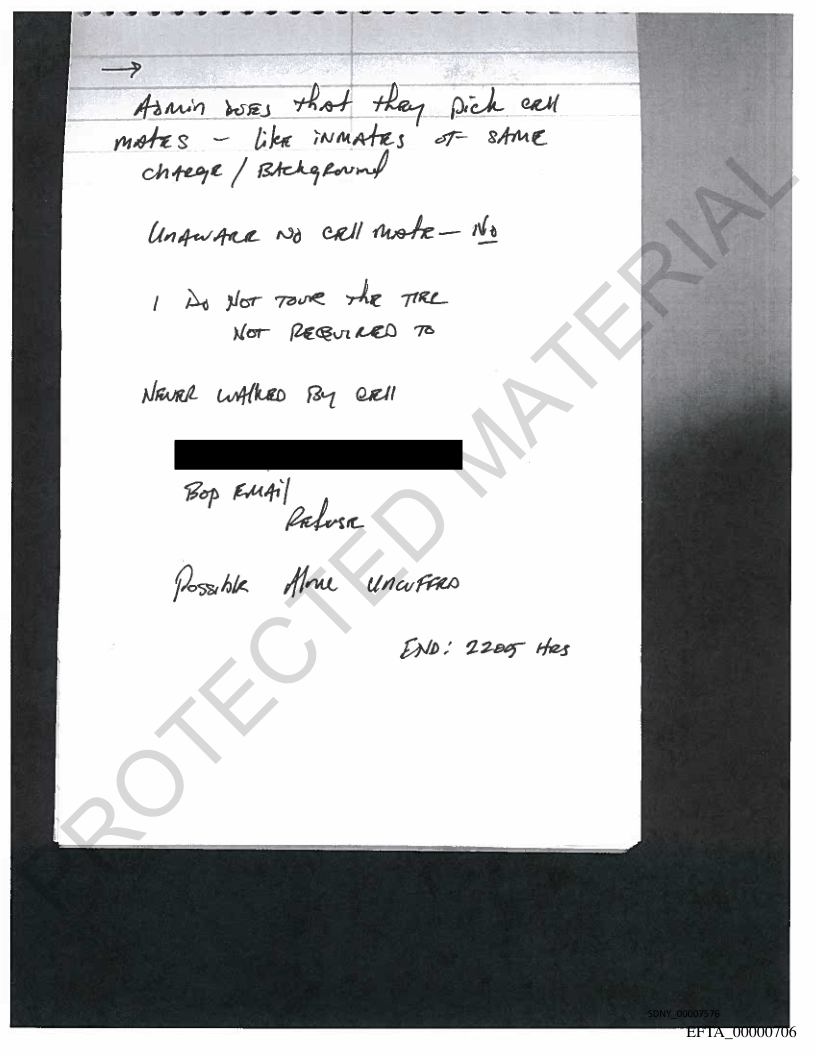 →
Admin does that they pick cell
mates – like inmates of same
charge / Background
Unaware no cell mate – No
I do not tour the tire
not required to
Never walked by cell
Bop Email
Refuse
Possible Alone uncuffed
End: 2205 Hrs
PROTECTED MATERIAL
SDNY_00007576
EFTA_00000706